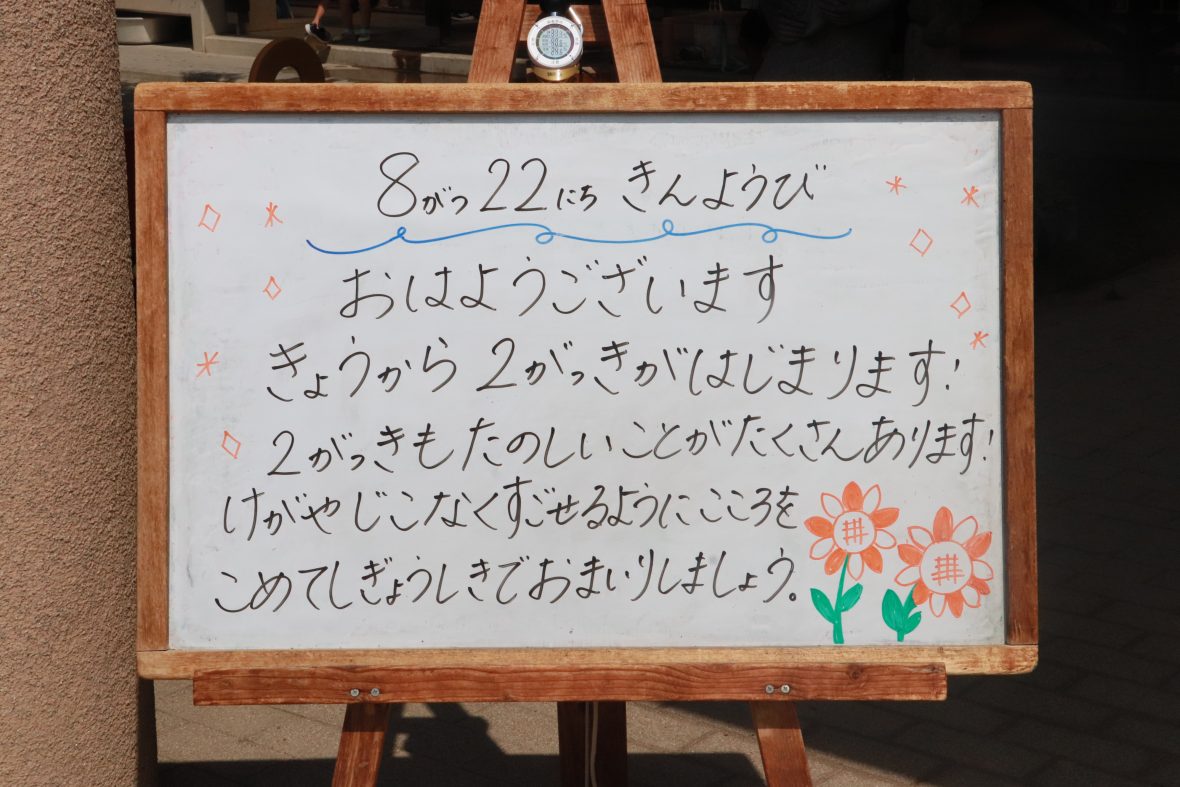 8がつ22にち きんようび
おはようございます
きょうから 2がっきがはじまります!
2がっきも たのしいことがたくさんあります!
けがや じこなくすごせるように こころを
こめてしぎょうしきでおまいりしましょう。